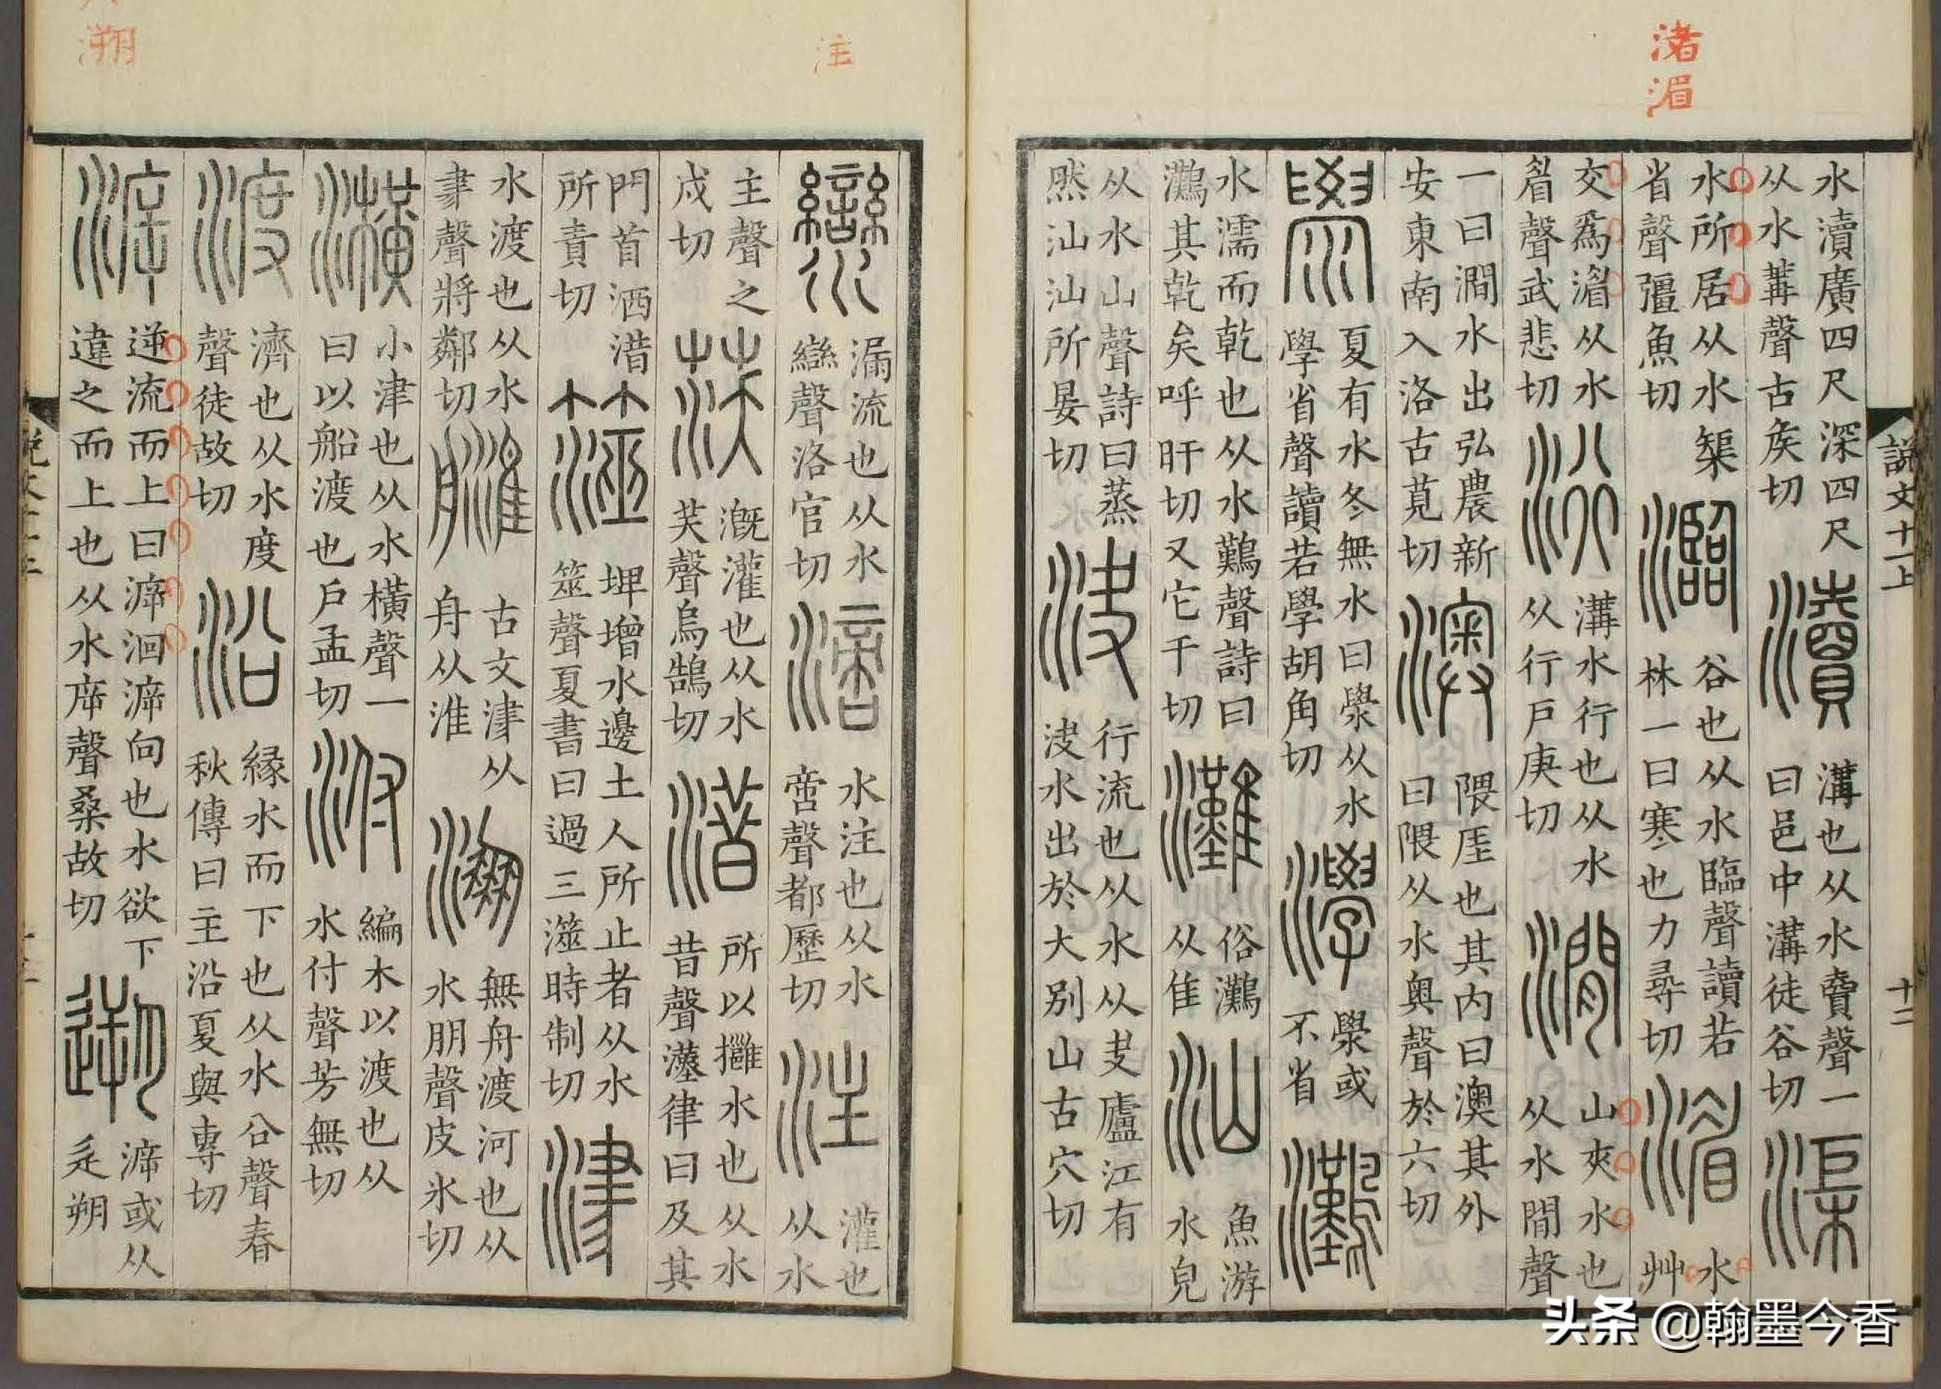 説文十一上
十二
渚
湄
水瀆廣四尺深四尺
从水冓聲古矦切
瀆
溝也从水𧶠聲一
曰邑中溝徒谷切
渠
水所居从水榘
省聲彊魚切
瀶
谷也从水臨聲讀若
林一曰寒也力尋切
湄
水
艸
交爲湄从水
眉聲武悲切
洐
溝水行也从水
从行戶庚切
澗
山夾水也
从水閒聲
一曰澗水出弘農新
安東南入洛古莧切
澳
隈厓也其内曰澳其外
曰隈从水奥聲於六切
澩
夏有水冬無水曰澩从水
學省聲讀若學胡角切
㶅
澩或
不省
灘
水濡而乾也从水鷬聲詩曰
灘其乾矣呼旰切又它干切
灘
俗灘
从隹
汕
魚游
水皃
从水山聲詩曰蒸
然汕汕所晏切
決
行流也从水从夬廬江有
決水出於大別山古穴切
注
溯
灓
漏流也从水
䜌聲洛官切
滴
水注也从水
啻聲都歷切
注
灌也
从水
主聲之
戍切
𣵽
溉灌也从水
芺聲烏鵠切
浩
所以攤水也从水
昔聲漢律曰及其
門首洒浩
所責切
澨
埤增水邊土人所止者从水
筮聲夏書曰過三澨時制切
津
水渡也从水
𦘔聲將鄰切
𦪰
古文津从
舟从淮
淜
無舟渡河也从
水朋聲皮冰切
潢
小津也从水橫聲一
曰以船渡也戶孟切
泭
編木以渡也从
水付聲芳無切
渡
濟也从水度
聲徒故切
沿
緣水而下也从水㕣聲春
秋傳曰王沿夏與專切
㴑
逆流而上曰㴑洄㴑向也水欲下
違之而上也从水㡿聲桑故切
遡
㴑或从
辵朔
头条 @翰墨今香